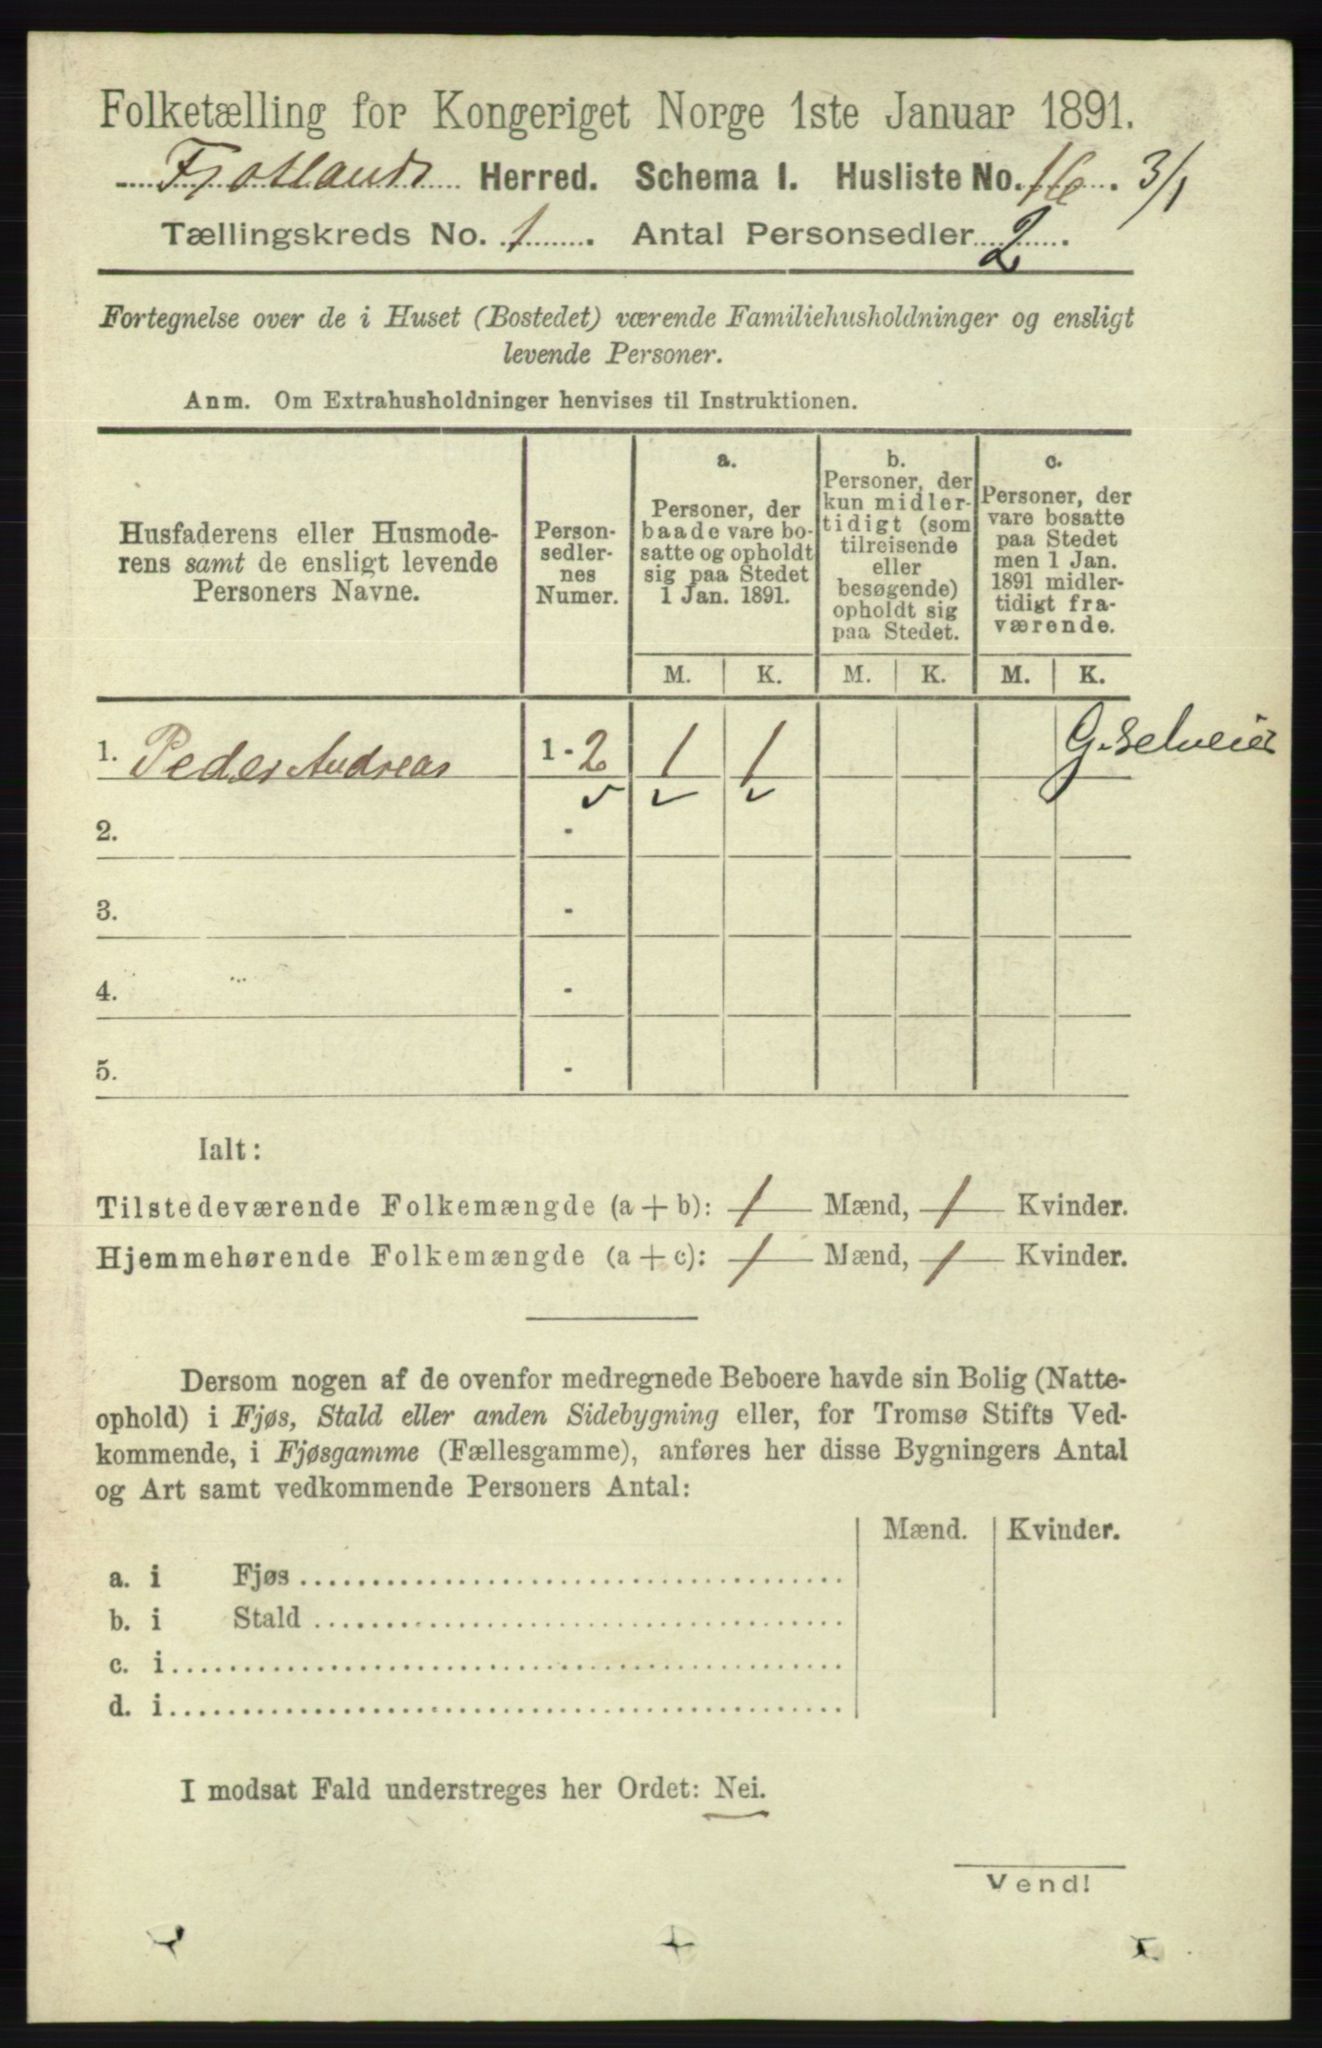 Folketælling for Kongeriget Norge 1ste Januar 1891.
Fjotlands Herred. Schema I. Husliste No. 16. 3/1
Tællingskreds No. 1. Antal Personsedler 2.
Fortegnelse over de i Huset (Bostedet) værende Familiehusholdninger og ensligt
levende Personer.
Anm. Om Extrahusholdninger henvises til Instruktionen.
Husfaderens eller Husmode-
rens samt de ensligt levende
Personers Navne.
Person-
sedler-
nes
Numer.
a.
Personer, der
baade vare bo-
satte og opholdt
sig paa Stedet
1 Jan. 1891.
b.
Personer, der
kun midler-
tidigt (som
tilreisende
eller
besøgende)
opholdt sig
paa Stedet.
c.
Personer, der
vare bosatte
paa Stedet
men 1 Jan.
1891 midler-
tidigt fra-
værende.
M. K. M. K. M. K.
1. Peder Andreas 1 - 2 1 1 G. Selveier
2. -
3. -
4. -
5. -
Ialt:
Tilstedeværende Folkemængde (a + b): 1 Mænd, 1 Kvinder.
Hjemmehørende Folkemængde (a + c): 1 Mænd, 1 Kvinder.
Dersom nogen af de ovenfor medregnede Beboere havde sin Bolig (Natte-
ophold) i Fjøs, Stald eller anden Sidebygning eller, for Tromsø Stifts Ved-
kommende, i Fjøsgamme (Fællesgamme), anføres her disse Bygningers Antal
og Art samt vedkommende Personers Antal:
Mænd. Kvinder.
a. i Fjøs
b. i Stald
c. i
d. i
I modsat Fald understreges her Ordet: Nei.
Vend!